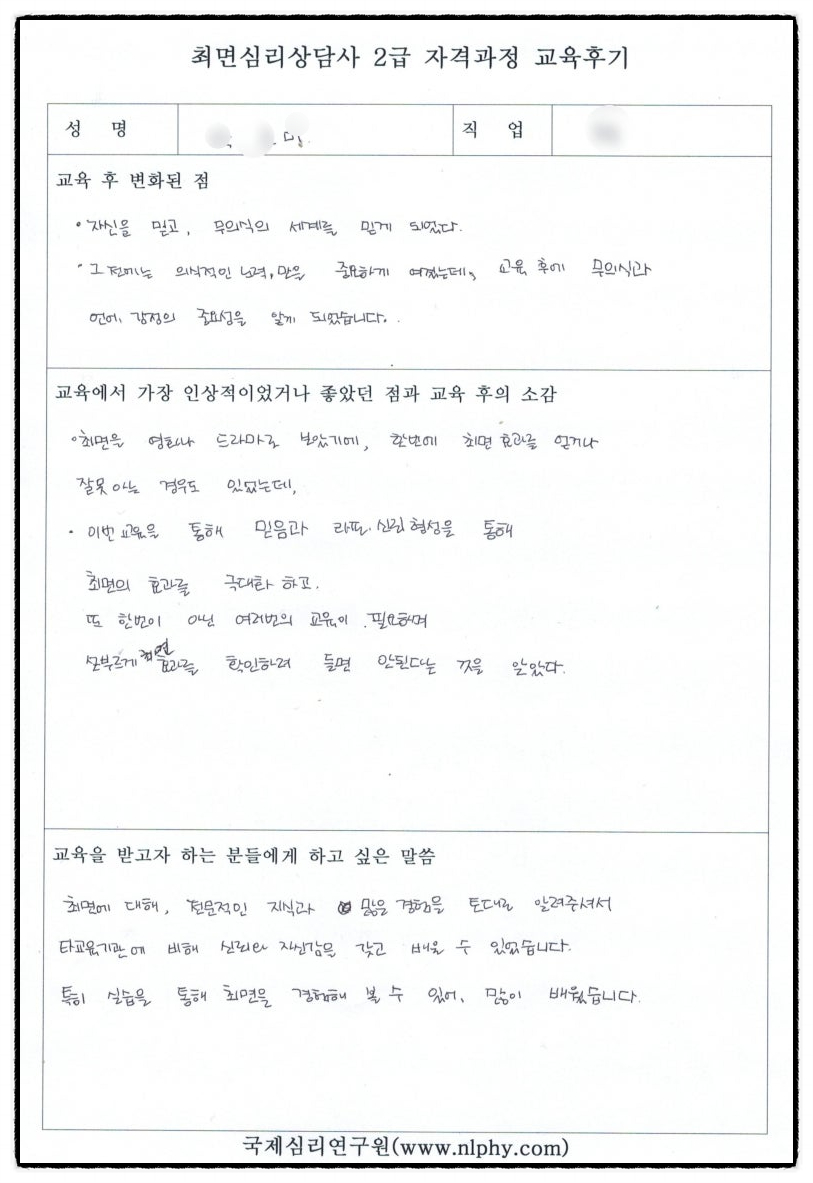 최면심리상담사 2급 자격과정 교육후기
성 명
직 업
교육 후 변화된 점
• 자신을 믿고, 무의식의 세계를 믿게 되었다.
• 그전에는 의식적인 노력,만을 중요하게 여겼는데, 교육 후에 무의식과
언어, 감정의 중요성을 알게 되었습니다.
교육에서 가장 인상적이었거나 좋았던 점과 교육 후의 소감
• 최면을 영화나 드라마로 보았기에, 한번에 최면 효과를 얻거나
잘못 아는 경우도 있었는데,
• 이번 교육을 통해 믿음과 라포. 신뢰 형성을 통해
최면의 효과를 극대화 하고.
또 한번이 아닌 여러번의 교육이 필요하며
섣부르게 최면 효과를 확인하려 들면 안된다는 것을 알았다.
교육을 받고자 하는 분들에게 하고 싶은 말씀
최면에 대해, 전문적인 지식과 많은 경험을 토대로 알려주셔서
타교육기관에 비해 신뢰와 자신감을 갖고 배울 수 있었습니다.
특히 실습을 통해 최면을 경험해 볼 수 있어, 많이 배웠습니다.
국제심리연구원(www.nlphy.com)